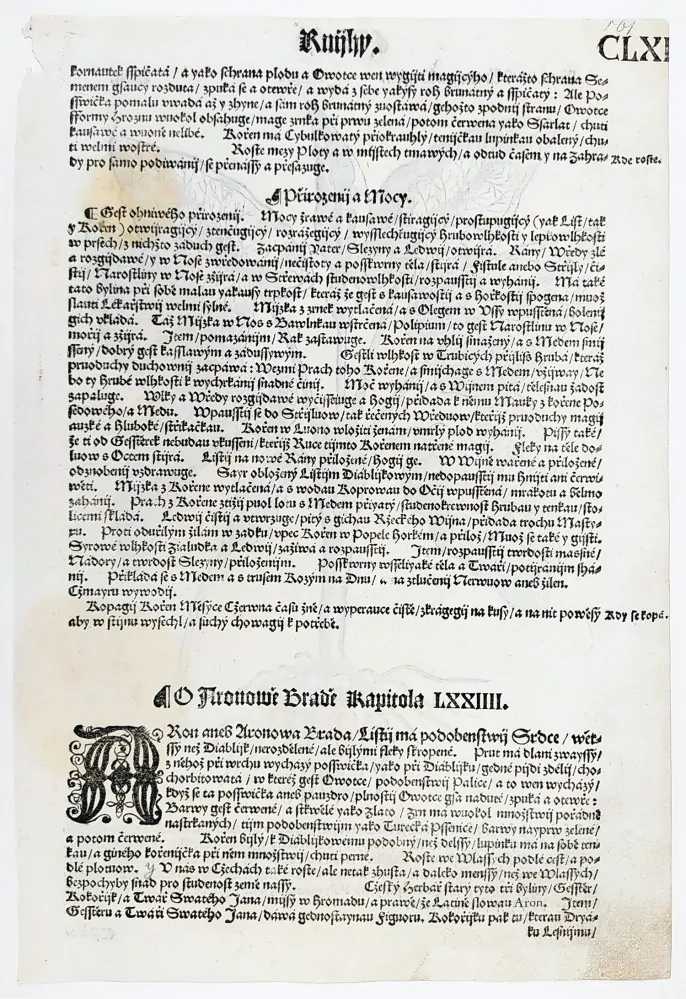 Knijhy.
CLXI
kornautek sspičatá / a yako schrana plodu a Owotce wen wygijti magijcýho / kterážto schrana Se-
menem gsaucy rozduta / zpuká se a otewře / a wydá z sebe yakýsy roh brunátný a sspičatý: Ale Po-
sswička pomalu uwadá až y zhyne / a sám roh brunátný zuostáwá / gehožto zpodnij stranu / Owotce
fformy Hroznu wuokol obsahuge / mage zrnka při prwu zelená / potom červená yako Ssarlat / chuti
kausawé a wuone nelibé. Kořen má Cybulkowatý přiokrauhlý / tenijčkau lupinkau obalený / chu-
ti welmi wostré. Roste mezy Ploty a w mijstech tmawých / a odtud časem y na Zahra-
dy pro samo podiwánij / se přenássý a přesazuge.
Kde roste.
Přirozenij a Mocy.
Gest ohniwého přirozenij. Mocy žrawé a kausawé / stiragijcý / prostupugijcý (yak List / tak
y Kořen) otwijragijcý / ztenčugijcý / rozrážegijcý / wysslechťugijcý Hrubowlhkosti y lepkowlhkosti
w prsech / z nichžto záduch gest. Zacpánij Jater / Slezyny a Ledwij / otwijrá. Rány / Wředy zlé
a rozgijdawé / y w Nose zwředowánij / nečistoty a posskwrny těla / stijrá / Fistule anebo Střijly / či-
stij / Narostliny w Nose zžijrá / a w Střewách studenowlhkosti / rozpausstij a wyhánij. Má také
tato bylina při sobě malau yakausy trpkost / kteráž že gest s kausawostij a s Hořkostij spogena / muož
slauti Lékařstwij welmi sylné. Mijzka z zrnek wytlačená / a s Olegem w Ussy wpusstěná / bolenij
gich vkládá. Táž Mijzka w Nos s Bawlnkau wstrčená / Polipium / to gest Narostlinu w Nose /
mořij a zžijrá. Item / pomazánijm / Rak zastawuge. Kořen na vhlij smažený / a s Medem snij
ssený / dobrý gest kasslawým a zádussywým. Gestli wlhkost w Trubicých přijliss Hrubá / kteráž
pruoduchy duchownij zacpáwá: Wezmi Prach toho Kořene / a smijchage s Medem / vžijway / Ne
bo ty Hrubé wlhkosti k wychrkánij snadné činij. Moč wyhánij / a s Wijnem pitá / tělesnau žádost
zapaluge. Wlky a Wředy rozgijdawé wyčissťuge a Hogij / přidada k němu Mauky z kořene Po-
sedowého / a Medu. Wpausstij se do Střijluow / tak řečených Wředuow / kteřijž pruoduchy magij
auzké a Hluboké / střijkačkau. Kořen w Luono wložiti ženám / vmrlý plod wyhánij. Pijssý také /
že ti od Gesstěrek nebudau vkusseni / kteřijž Ruce tijmto Kořenem natřené magij. Fleky na těle do-
luow s Octem stijrá. Listij na nowé Rány přiložené / Hogij ge. W Wijně wařené a přiložené /
odznobenij vzdrawuge. Sayr obložený Listijm Diablijkowým / nedopausstij mu Hnijti ani čerwi-
wěti. Mijzka z Kořene wytlačená / a s wodau Koprowau do Očij wpusstěná / mrákotu a bělmo
zahánij. Prach z Kořene ztijži puol lotu s Medem přiyatý / studenokrewnost Hrubau y tenkau / sto-
licemi skládá. Ledwij čistij a vtwrzuge / pitý s gichau Řeckého Wijna / přidada trochu Masty-
xu. Proti oduřilým žilám w zadku / vpec Kořen w Popele Horkém / a přilož / Muož se také y gijsti.
Syrowé wlhkosti Žialudka a Ledwij / zažiwá a rozpausstij. Item / rozpausstij twrdosti masité /
Nádory / a twrdost Slezyny / přiloženijm. Posskwrny wsselijaké těla a Twáři / potijránijm shá-
nij. Přikládá se s Medem a s trusem Kozým na Dnu / na ztlučenij Nerwuow aneb žilen.
Cžmayru wywodij.
Kopagij Kořen Měsýce Cžerwna času žně / a wyperauce čistě / zkrágegij na kusy / a na nit powěsý
aby w stijnu wysechl / a suchý chowagij k potřebě.
Kdy se kopá.
O Aronowě Bradě Kapitola LXXIIII.
ARon aneb Aronowa Brada / Listij má podobenstwij Srdce / wět-
ssý než Diablijk / nerozdělené / ale bijlými fleky skropené. Prut má dlani zwayssý /
z něhož při wrchu wycházý posswička / yako při Diablijku / gedné pijdi zdélij / cho-
chorbitowatá / w kteréž gest Owotce / podobenstwij Palice / a to wen wycházý /
když se ta posswička aneb pauzdro / plnostij Owotce gsa naduté / zpuká a otewře:
Barwy gest červené / a stkwělé yako zlato / zrn má wuokol množstwij pořádně
nastrkaných / tijm podobenstwijm yako Turecká Pssenice / barwy nayprw zelené /
a potom červené. Kořen bijlý / k Diablijkowému podobný / než delssý / lupinku má na sobě ten-
kau / a giného kořenijčka při něm množstwij / chuti perné. Roste we Wlassých podlé cest / a po-
dlé plotuow. Y v nás w Cžechách také roste / ale netak zhusta / a daleko menssý / než we Wlassých /
bezpochyby snad pro studenost země nassý. Cžeský Herbář starý tyto tři byliny / Gesstěr /
Kokořijk / a Twář Swatého Jana / mijsý w Hromadu / a prawě / že Latině slowau Aron. Item /
Gesstěru a Twáři Swatého Jana / dáwá gednostaynau Figuru. Kokořijku pak tu / kterau Dryá-
ku Lesnijmu /